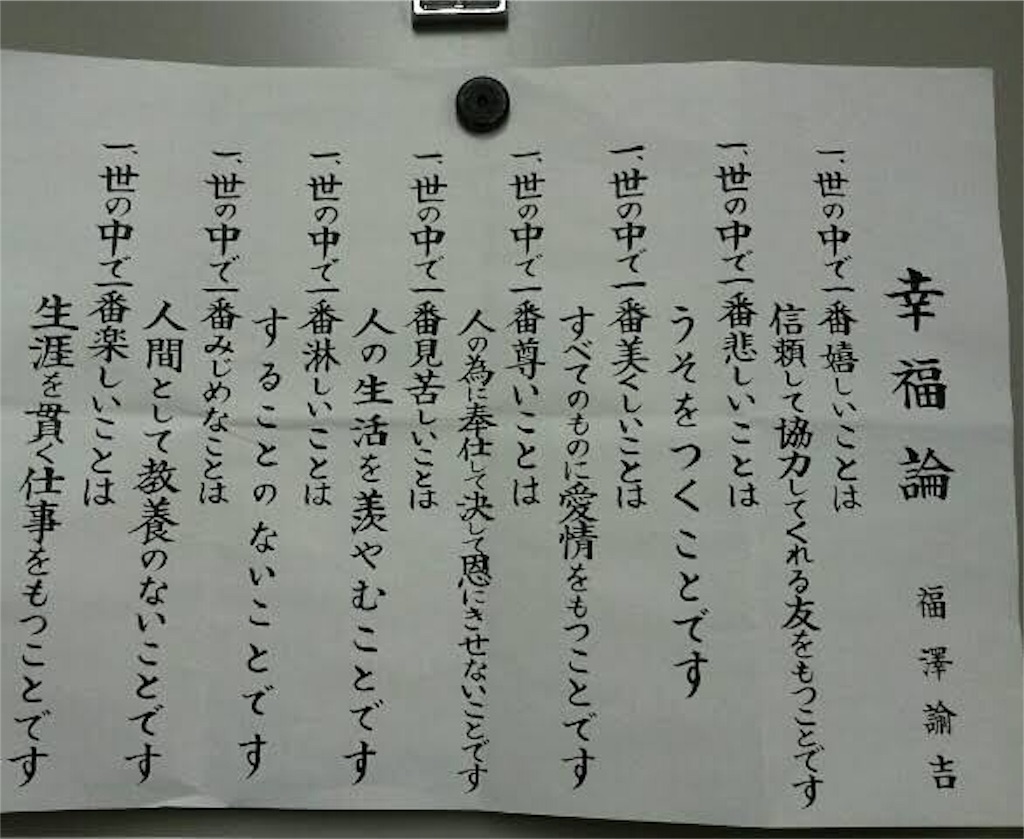 幸福論
福澤諭吉
一、世の中で一番嬉しいことは
信頼して協力してくれる友をもつことです
一、世の中で一番悲しいことは
うそをつくことです
一、世の中で一番美くしいことは
すべてのものに愛情をもつことです
一、世の中で一番尊いことは
人の為に奉仕して決して恩にきせないことです
一、世の中で一番見苦しいことは
人の生活を羨やむことです
一、世の中で一番淋しいことは
することのないことです
一、世の中で一番みじめなことは
人間として教養のないことです
一、世の中で一番楽しいことは
生涯を貫く仕事をもつことです